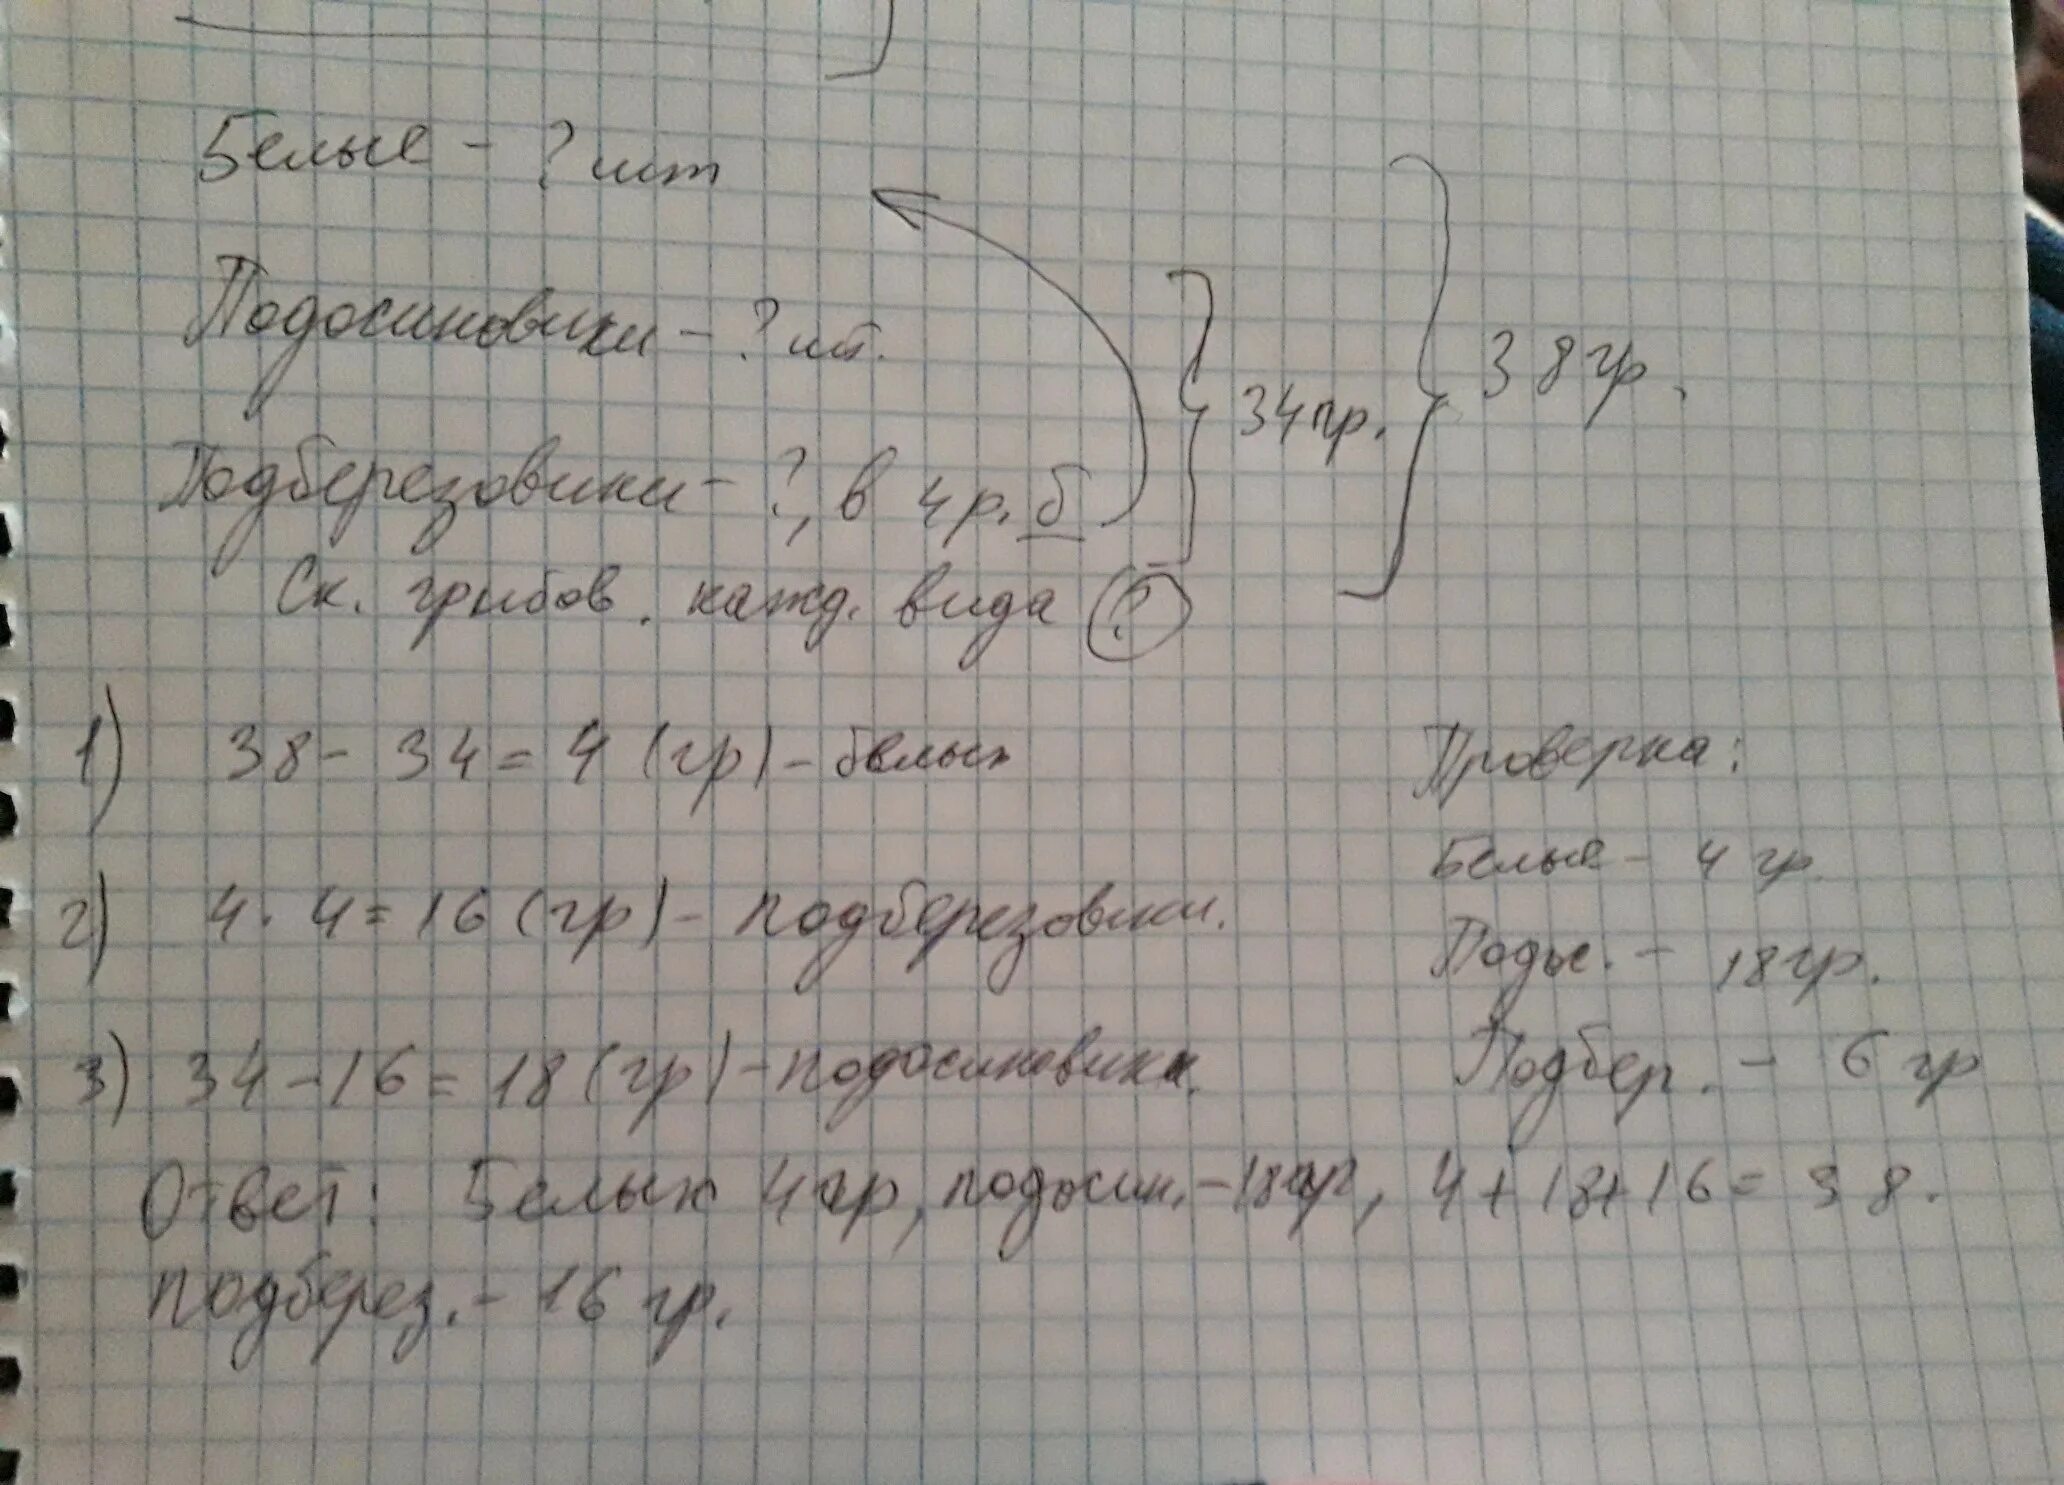 Белые - ? шт
Подосиновики - ? шт.
Подберезовики - ?, в 4 р. б
34 гр.
38 гр.
Ск. грибов. кажд. вида ?
1) 38 - 34 = 4 (гр) - белых
2) 4 · 4 = 16 (гр) - подберезовики.
3) 34 - 16 = 18 (гр) - подосиновики.
Ответ: Белых 4 гр, подосин. - 18 гр,
подберез. - 16 гр.
Проверка:
Белые - 4 гр.
Подос. - 18 гр.
Подбер. - 6 гр
4 + 18 + 16 = 38.